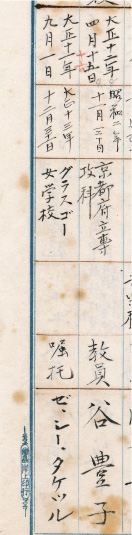 大正十二年
四月十五日
昭和二年
十一月三日
京都府立専
攻科
教員
谷豊子
大正十年
九月一日
大正十三年
十二月
グラスゴー
女学校
嘱托
ゼ、シー、タケツル